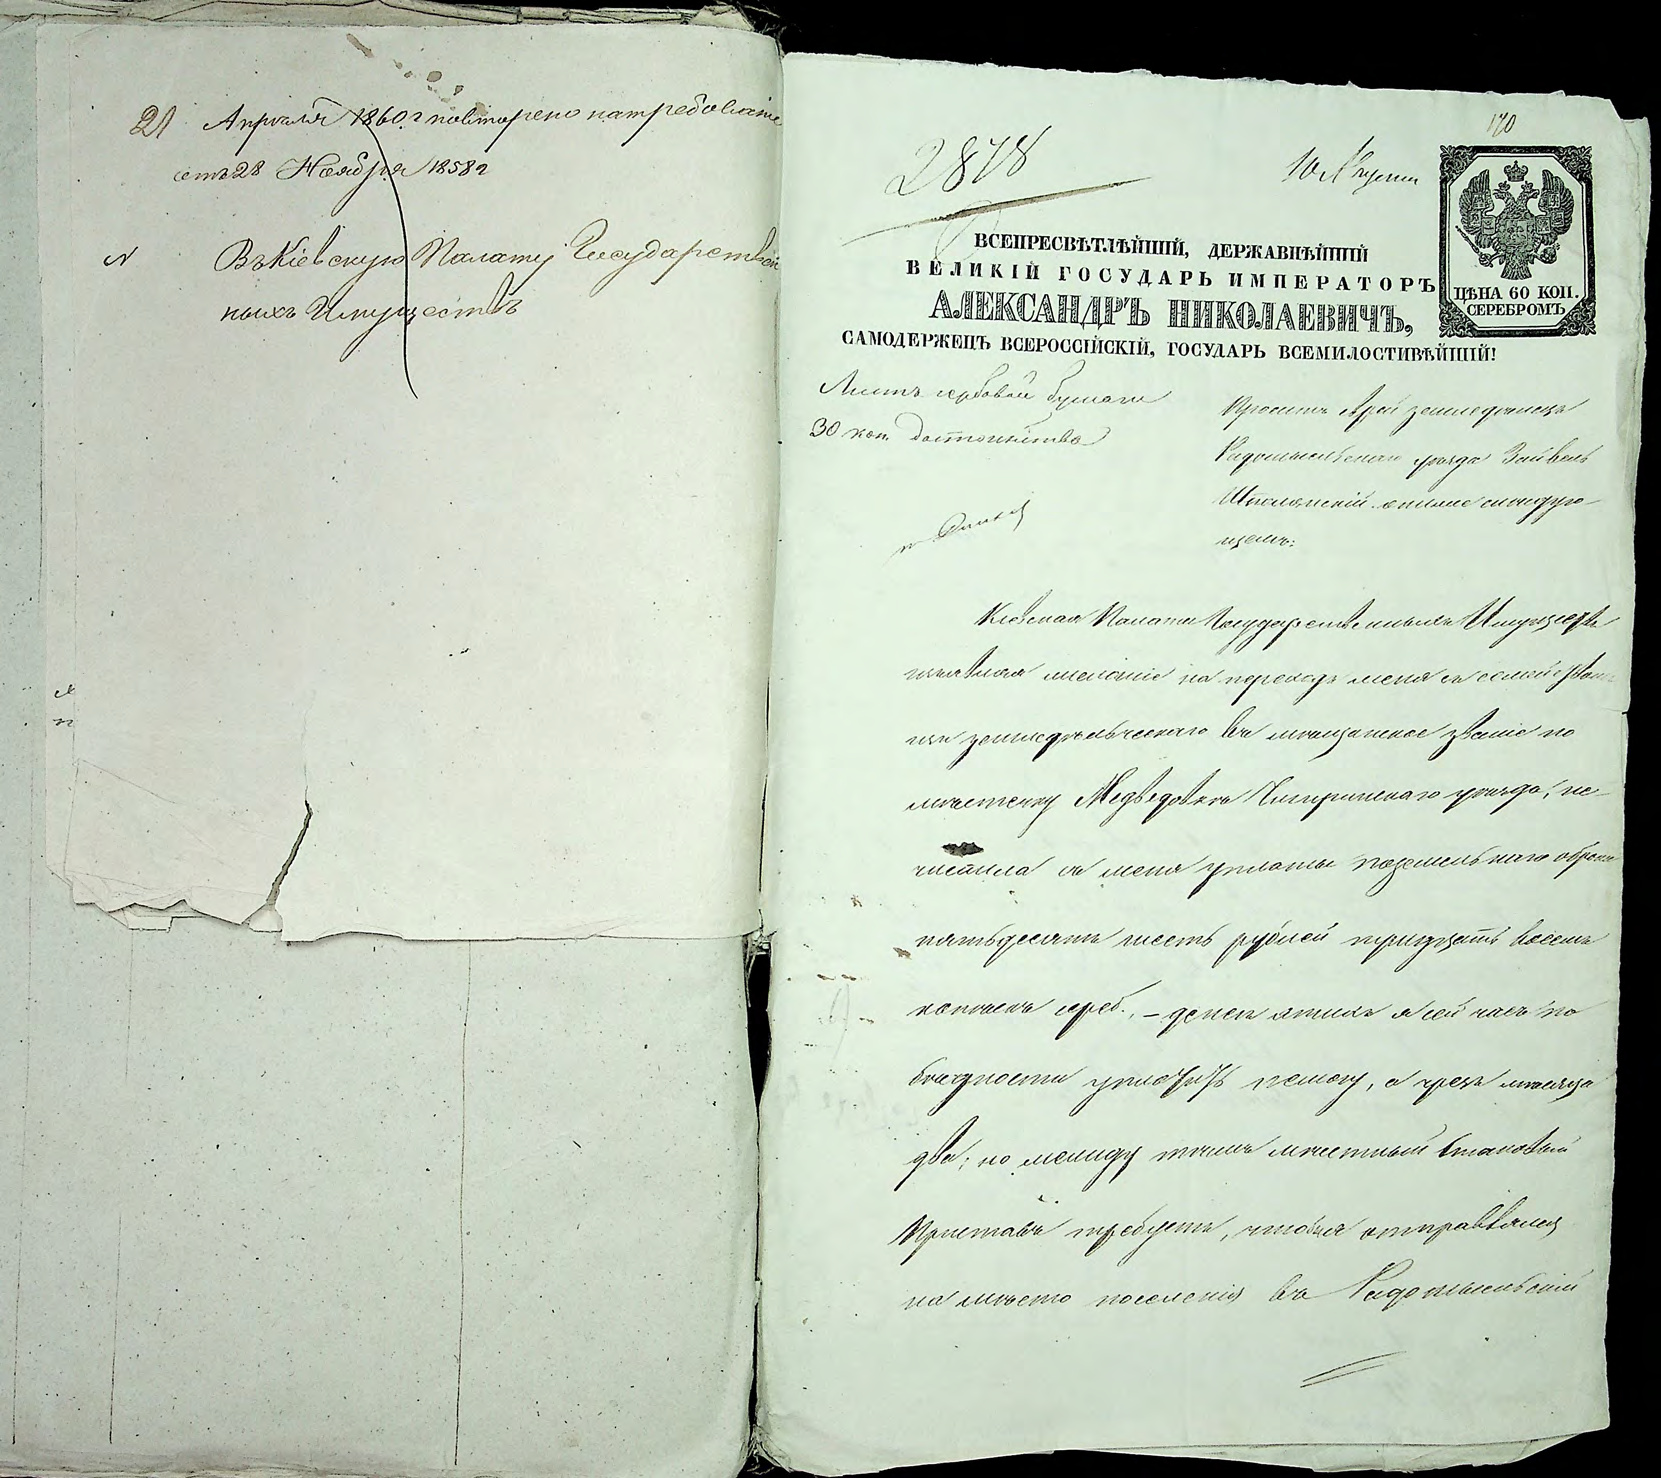 21 Апреля 1860 г повторено натребование
отъ 28 Ноября 1858 г
Въ Кіевскую Палату Государствен
ныхъ Имуществъ
170
2878
10 Августа
ВСЕПРЕСВѢТЛѢЙШІЙ, ДЕРЖАВНѢЙШІЙ
ВЕЛИКІЙ ГОСУДАРЬ ИМПЕРАТОРЪ
АЛЕКСАНДРЪ НИКОЛАЕВИЧЪ,
САМОДЕРЖЕЦЪ ВСЕРОССІЙСКІЙ, ГОСУДАРЬ ВСЕМИЛОСТИВѢЙШІЙ!
ЦѢНА 60 КОП.
СЕРЕБРОМЪ
Листъ гербовой бумаги
30 коп. достоинства
Проситъ Еврей земледѣлецъ
Радомысльскаго уѣзда Зайвель
Шполянскій о нижеслѣдую
щемъ:
Кіевская Палата Государственныхъ Имуществъ
изъявляя согласіе на переходъ меня съ семействомъ
изъ земледѣльческаго въ мѣщанское званіе по
мѣстечку Медведовкѣ Чигиринскаго уѣзда, ис-
числила съ меня уплаты поземельнаго оброка
пятьдесятъ шесть рублей тридцать восемь
копѣекъ сереб., – денегъ этихъ я сей часъ по
бѣдности уплатить немогу, а чрезъ мѣсяца
два; но между тѣмъ мѣстный Становой
Приставъ требуетъ, чтобы я отправился
на мѣсто поселенія въ Радомысльскій